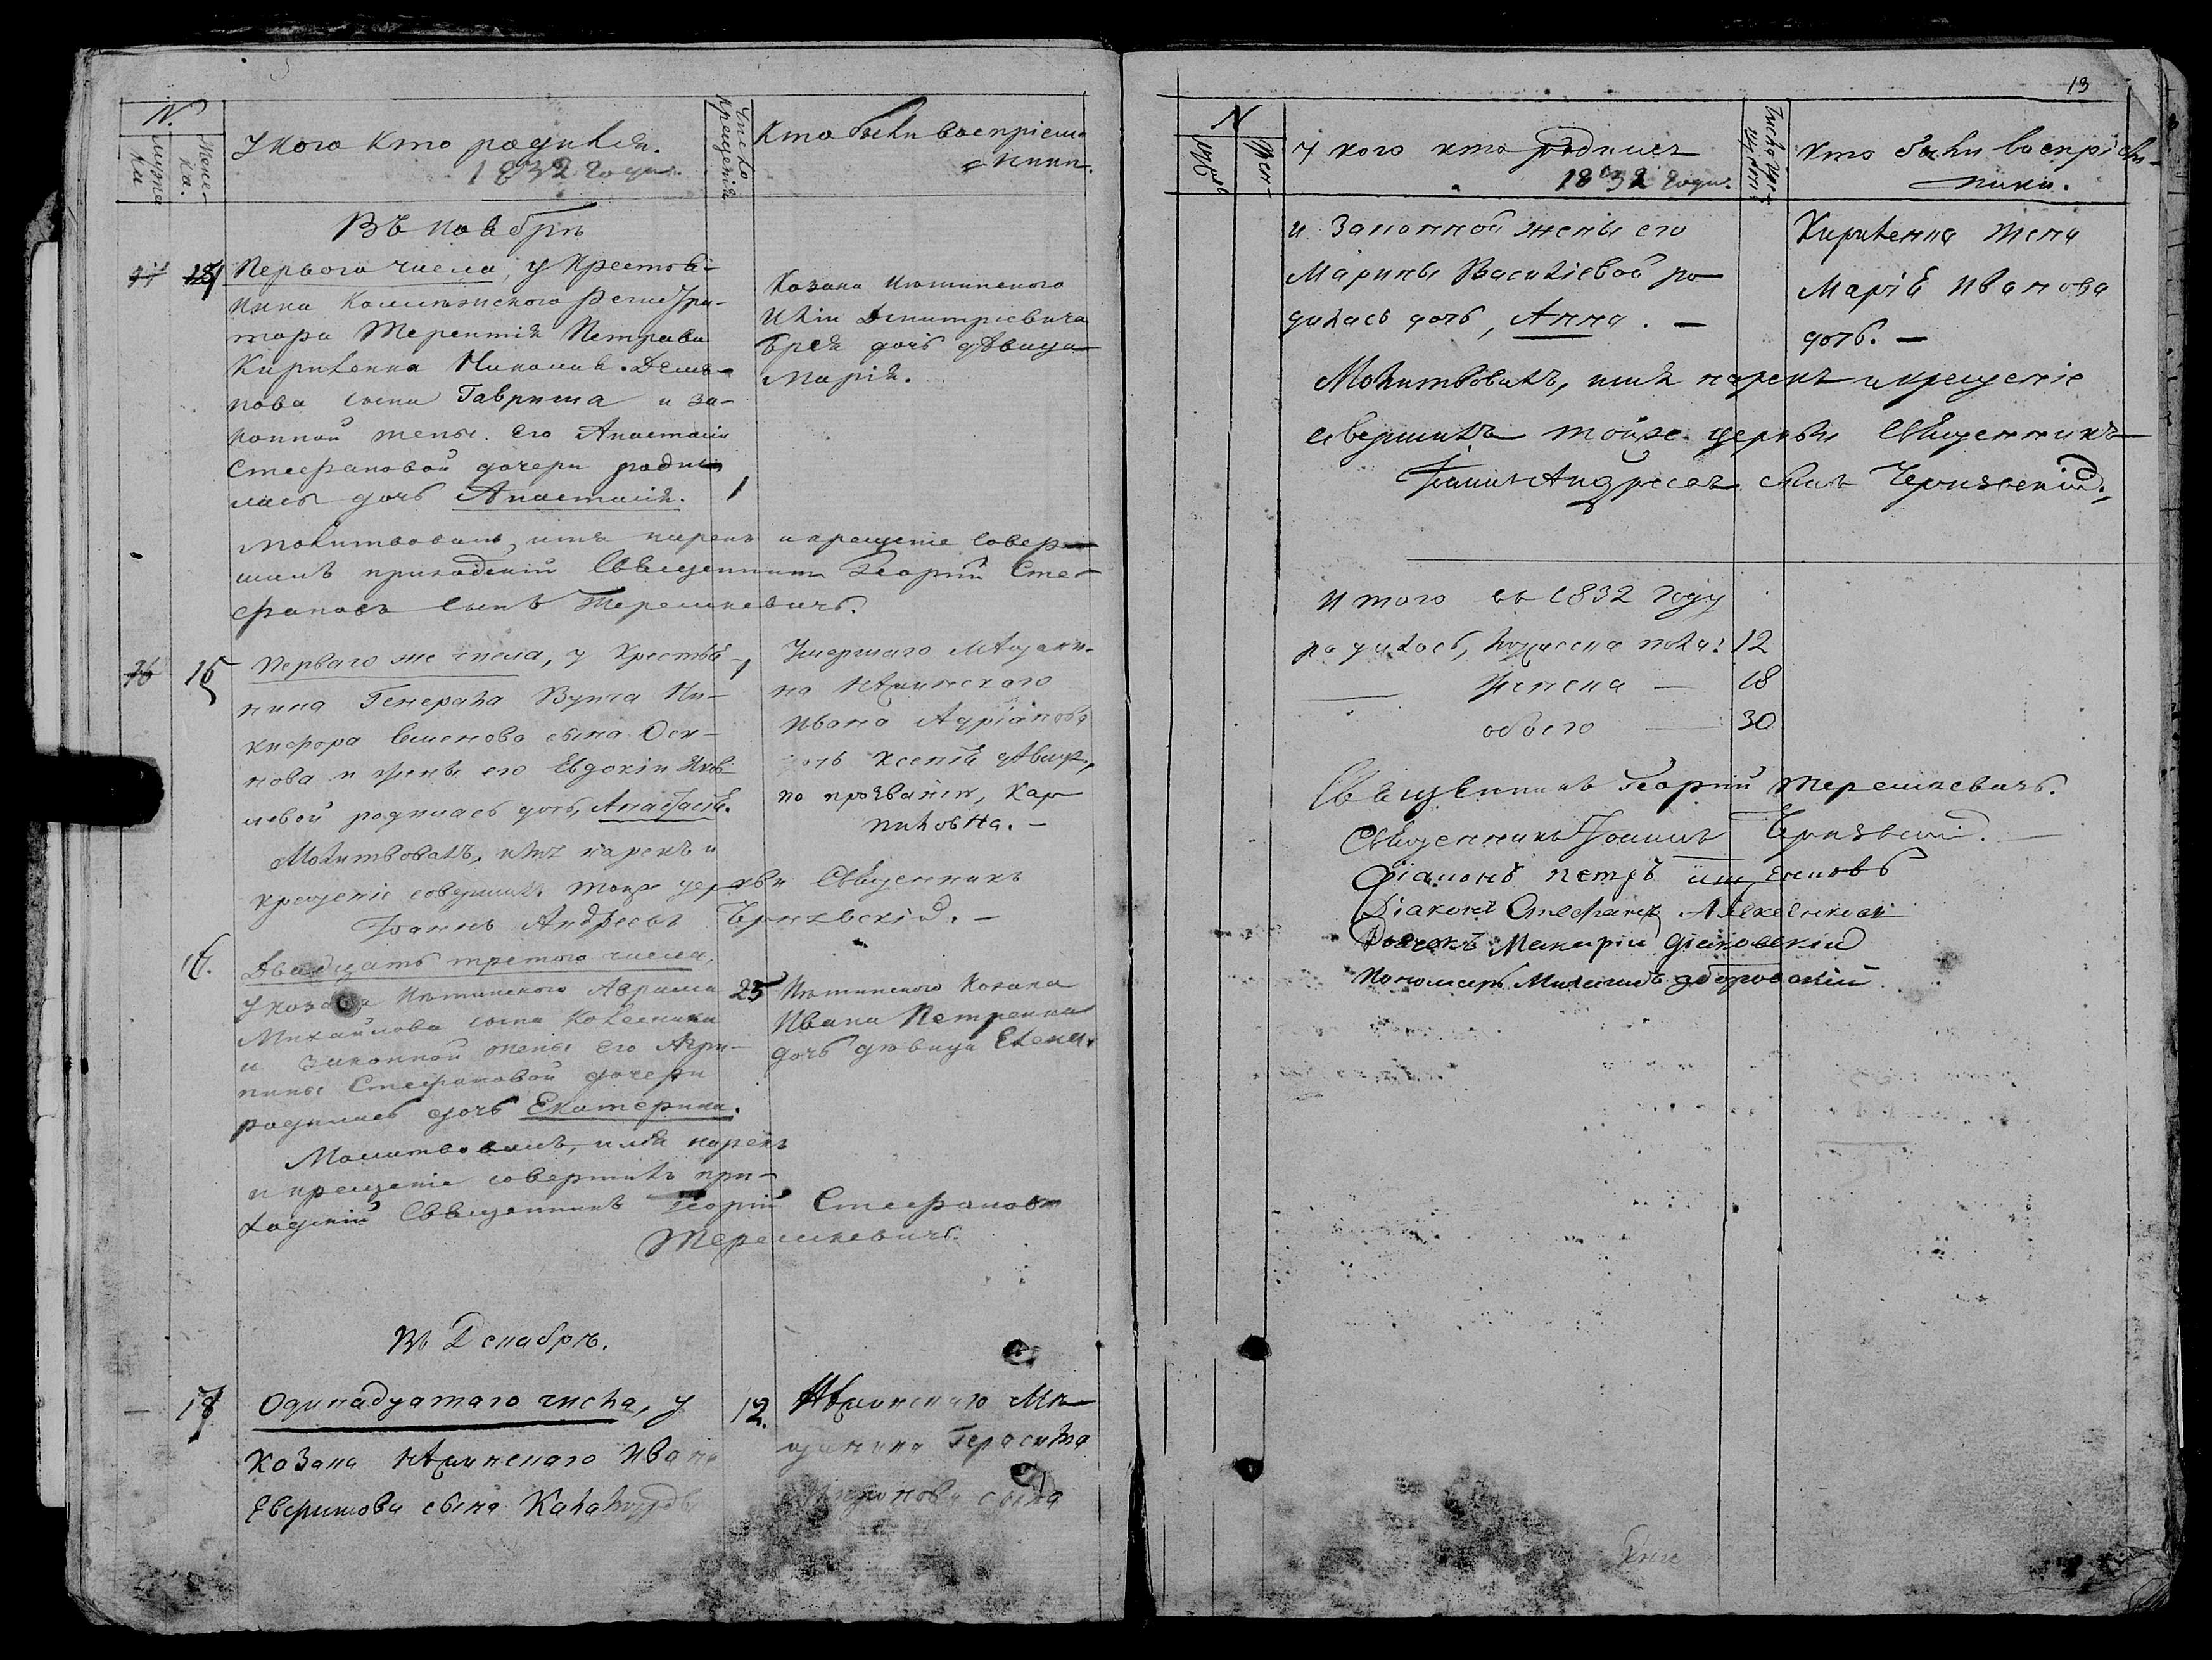 N.
мужеска
Женска.
У кого кто родился.
1832 года.
Число крещения
Кто были воспріемники.
Въ ноябрѣ
Перваго числа, у крестья-
нина Коллежскаго Регистра-
тора Терентія Петрова
Кириленка
нова сына Гаврила и за-
конной жены его Анастасіи
Стефановой дочери роди-
лась дочь Анастасія.
1
Козака Нѣжинскаго
Иліи Димитріевича
дочь дѣвица
Марія.
Молитвовалъ, имя нарекъ и крещеніе совер-
шилъ приходскій Священникъ Георгій Сте-
фановъ сынъ Терешкевичъ.
15
Перваго же числа, у крестья-
нина Генерала Вунча Ни-
кифора Семенова сына Оси-
пова и жены его Евдокіи Яков-
левой родилась дочь, Анастасія.
1
Умершаго мѣщани-
на Нѣжинскаго
Ивана Адріанова
дочь Ксенія дѣвица,
по прозванію, Кар-
пиловна.
Молитвовалъ, имя нарекъ и
крещеніе совершилъ тойже церкви Священникъ
Іоаннъ Андреевъ Чернявскій.
16.
Двадцать третого числа,
у козака Нѣжинского Аврама
Михайлова сына Колесника
и законной жены его Агри-
пины Стефановой дочери
родилась дочь Екатерина.
25
Нѣжинского козака
Ивана Петренка
дочь дѣвица Елена.
Молитвовалъ, имя нарекъ
и крещеніе совершилъ при-
ходскій Священникъ Георгій Стефановъ
Терешкевичъ.
Въ Декабрѣ.
Одинадцатаго числа, у
козака Нѣжинскаго Ивана
сына
12.
Нѣжинскаго мѣ-
щанина Герасима
сына
13
N
муже
жен
У кого кто родился
1832 года.
Число крещ
Кто были воспріем-
ники.
и законной жены его
Марины Василіевой ро-
дилась дочь, Анна.
Кириленка жена
Марія Иванова
дочь.
Молитвовалъ, имя нарекъ и крещеніе
совершилъ тойже церкви Священникъ
Іоаннъ Андреевъ сынъ Чернявскій.
Итого въ 1832 году
родилось, мужеска пола: 12
женска 18
обоего 30
Священникъ Георгій Терешкевичъ.
Священникъ Іоаннъ Чернявскій.
Діаконъ Петръ
Діаконъ Стефанъ
Дьячокъ Макарій Діаковскій
Пономарь Михаилъ